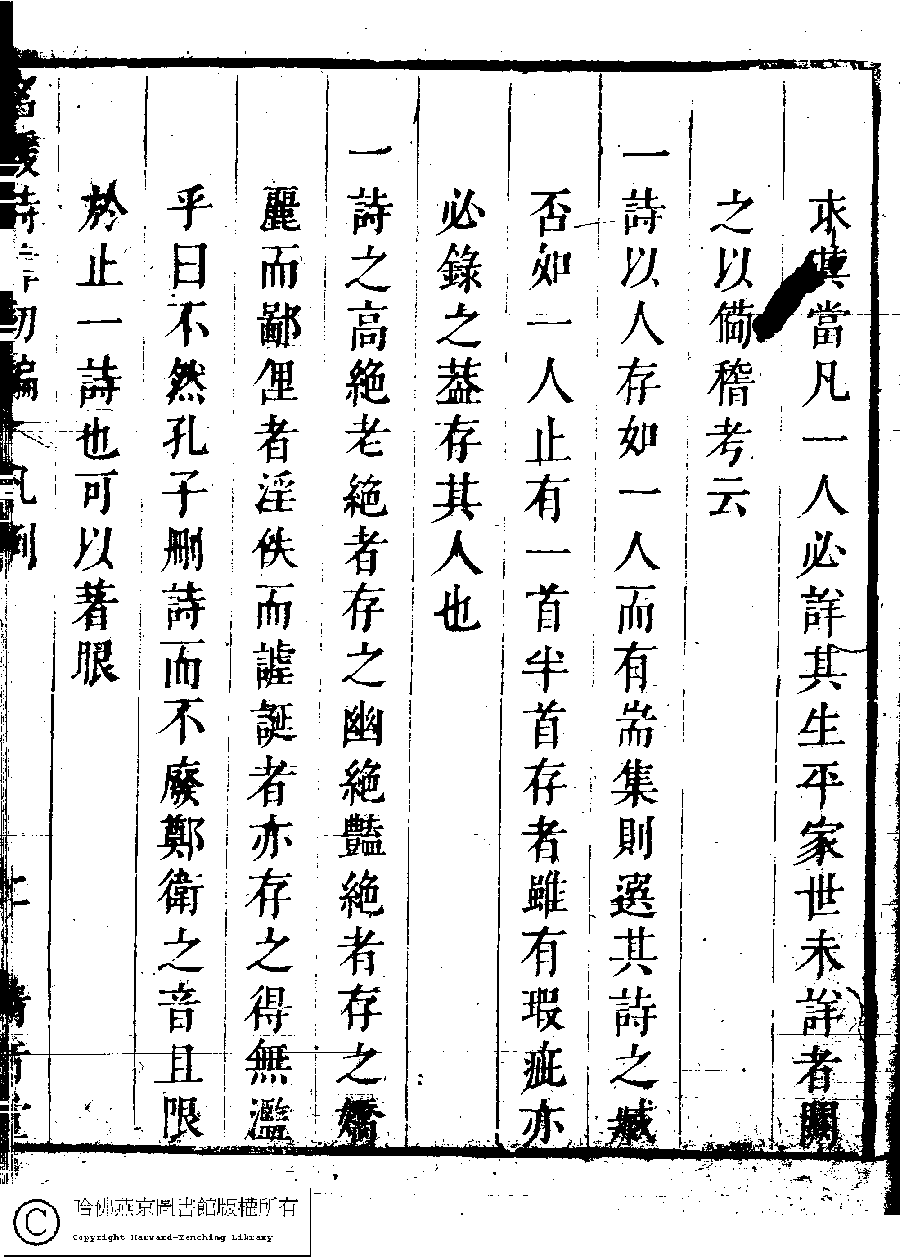 求其當凡一人必詳其生平家世未詳者闕
之以備稽考云
一詩以人存如一人而有耑集則選其詩之臧
否如一人止有一首半首存者雖有瑕疵亦
必錄之葢存其人也
一詩之高絶老絶者存之幽絶豔絶者存之嬌
麗而鄙俚者淫佚而謔誕者亦存之得無濫
乎曰不然孔子刪詩而不廢鄭衛之音且限
於止一詩也可以著眼
名媛詩 初編 凡例
清 堂
哈佛燕京圖書館版權所有
Copyright Harvard-Yenching Library